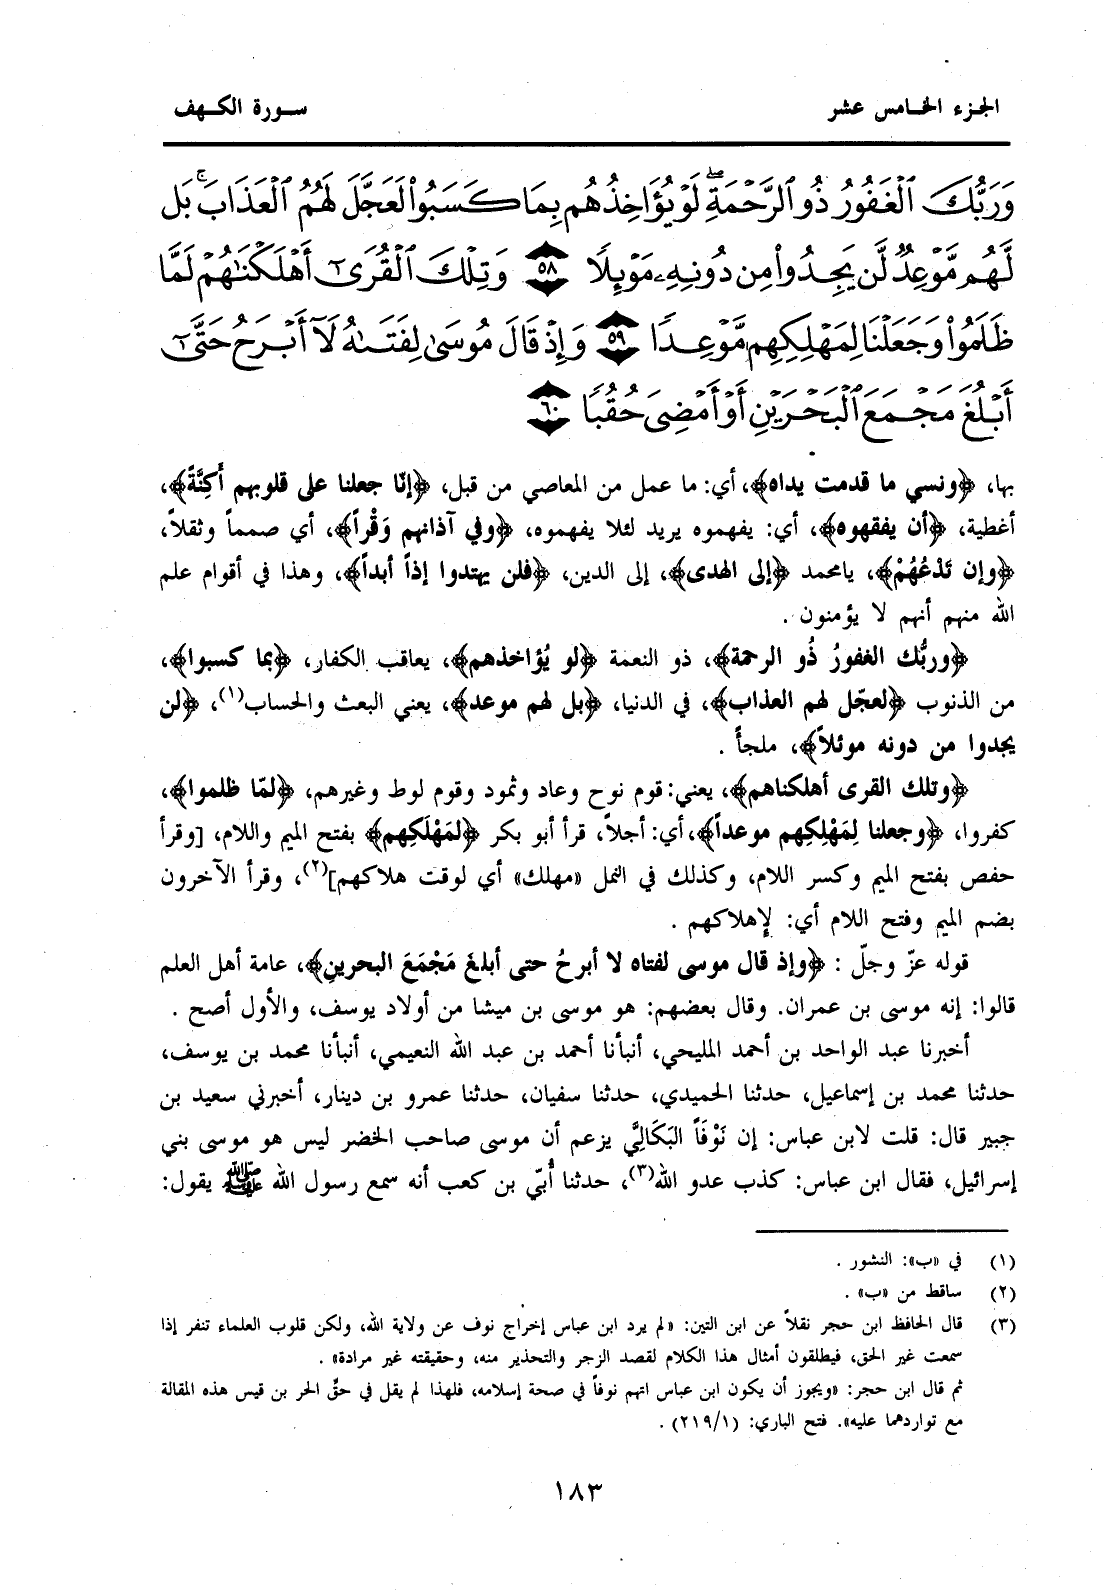 الجزء الخامس عشر
سورة الكهف
وَرَبُّكَ ٱلْغَفُورُ ذُو ٱلرَّحْمَةِ ۖ لَوْ يُؤَاخِذُهُم بِمَا كَسَبُوا۟ لَعَجَّلَ لَهُمُ ٱلْعَذَابَ ۚ بَل
لَّهُم مَّوْعِدٌ لَّن يَجِدُوا۟ مِن دُونِهِۦ مَوْئِلًا ٥٨ وَتِلْكَ ٱلْقُرَىٰٓ أَهْلَكْنَـٰهُمْ لَمَّا
ظَلَمُوا۟ وَجَعَلْنَا لِمَهْلِكِهِم مَّوْعِدًا ٥٩ وَإِذْ قَالَ مُوسَىٰ لِفَتَىٰهُ لَآ أَبْرَحُ حَتَّىٰٓ
أَبْلُغَ مَجْمَعَ ٱلْبَحْرَيْنِ أَوْ أَمْضِىَ حُقُبًا ٦٠
بها، ﴿ونسي ما قدمت يداه﴾، أي: ما عمل من المعاصي من قبل، ﴿إنّا جعلنا على قلوبهم أَكِنَّةً﴾،
أغطية، ﴿أن يفقهوه﴾، أي: يفهموه يريد لئلا يفهموه، ﴿وفي آذانهم وَقْراً﴾، أي صمماً وثقلاً،
﴿وإن تَدْعُهُمْ﴾، يامحمد ﴿إلى الهدى﴾، إلى الدين، ﴿فلن يهتدوا إذاً أبداً﴾، وهذا في أقوام علم
الله منهم أنهم لا يؤمنون .
﴿وربُّك الغفورُ ذُو الرحمة﴾، ذو النعمة ﴿لو يُؤاخذهم﴾، يعاقب الكفار، ﴿بما كسبوا﴾،
من الذنوب ﴿لعجّل لهم العذاب﴾، في الدنيا، ﴿بل لهم موعد﴾، يعني البعث والحساب(١)، ﴿لن
يجدوا من دونه موئلاً﴾، ملجأً .
﴿وتلك القرى أهلكناهم﴾، يعني: قوم نوح وعاد وثمود وقوم لوط وغيرهم، ﴿لمّا ظلموا﴾،
كفروا، ﴿وجعلنا لِمَهْلِكِهم موعداً﴾، أي: أجلاً، قرأ أبو بكر ﴿لمَهْلَكِهم﴾ بفتح الميم واللام، [وقرأ
حفص بفتح الميم وكسر اللام، وكذلك في النمل «مهلك» أي لوقت هلاكهم](٢)، وقرأ الآخرون
بضم الميم وفتح اللام أي: لإهلاكهم .
قوله عزّ وجلّ : ﴿وإذ قال موسى لفتاه لا أبرحُ حتى أبلغَ مَجْمَعَ البحرينِ﴾، عامة أهل العلم
قالوا: إنه موسى بن عمران. وقال بعضهم: هو موسى بن ميشا من أولاد يوسف، والأول أصح .
أخبرنا عبد الواحد بن أحمد المليحي، أنبأنا أحمد بن عبد الله النعيمي، أنبأنا محمد بن يوسف،
حدثنا محمد بن إسماعيل، حدثنا الحميدي، حدثنا سفيان، حدثنا عمرو بن دينار، أخبرني سعيد بن
جبير قال: قلت لابن عباس: إن نَوْفَاً البَكَالِيَّ يزعم أن موسى صاحب الخضر ليس هو موسى بني
إسرائيل، فقال ابن عباس: كذب عدو الله(٣)، حدثنا أُبيّ بن كعب أنه سمع رسول الله ﷺ يقول:
(١) في «ب»: النشور .
(٢) ساقط من «ب» .
(٣) قال الحافظ ابن حجر نقلاً عن ابن التين: «لم يرد ابن عباس إخراج نوف عن ولاية الله، ولكن قلوب العلماء تنفر إذا
سمعت غير الحق، فيطلقون أمثال هذا الكلام لقصد الزجر والتحذير منه، وحقيقته غير مرادة» .
ثم قال ابن حجر: «ويجوز أن يكون ابن عباس اتهم نوفاً في صحة إسلامه، فلهذا لم يقل في حقِّ الحر بن قيس هذه المقالة
مع تواردهما عليه». فتح الباري: (٢١٩/١) .
١٨٣